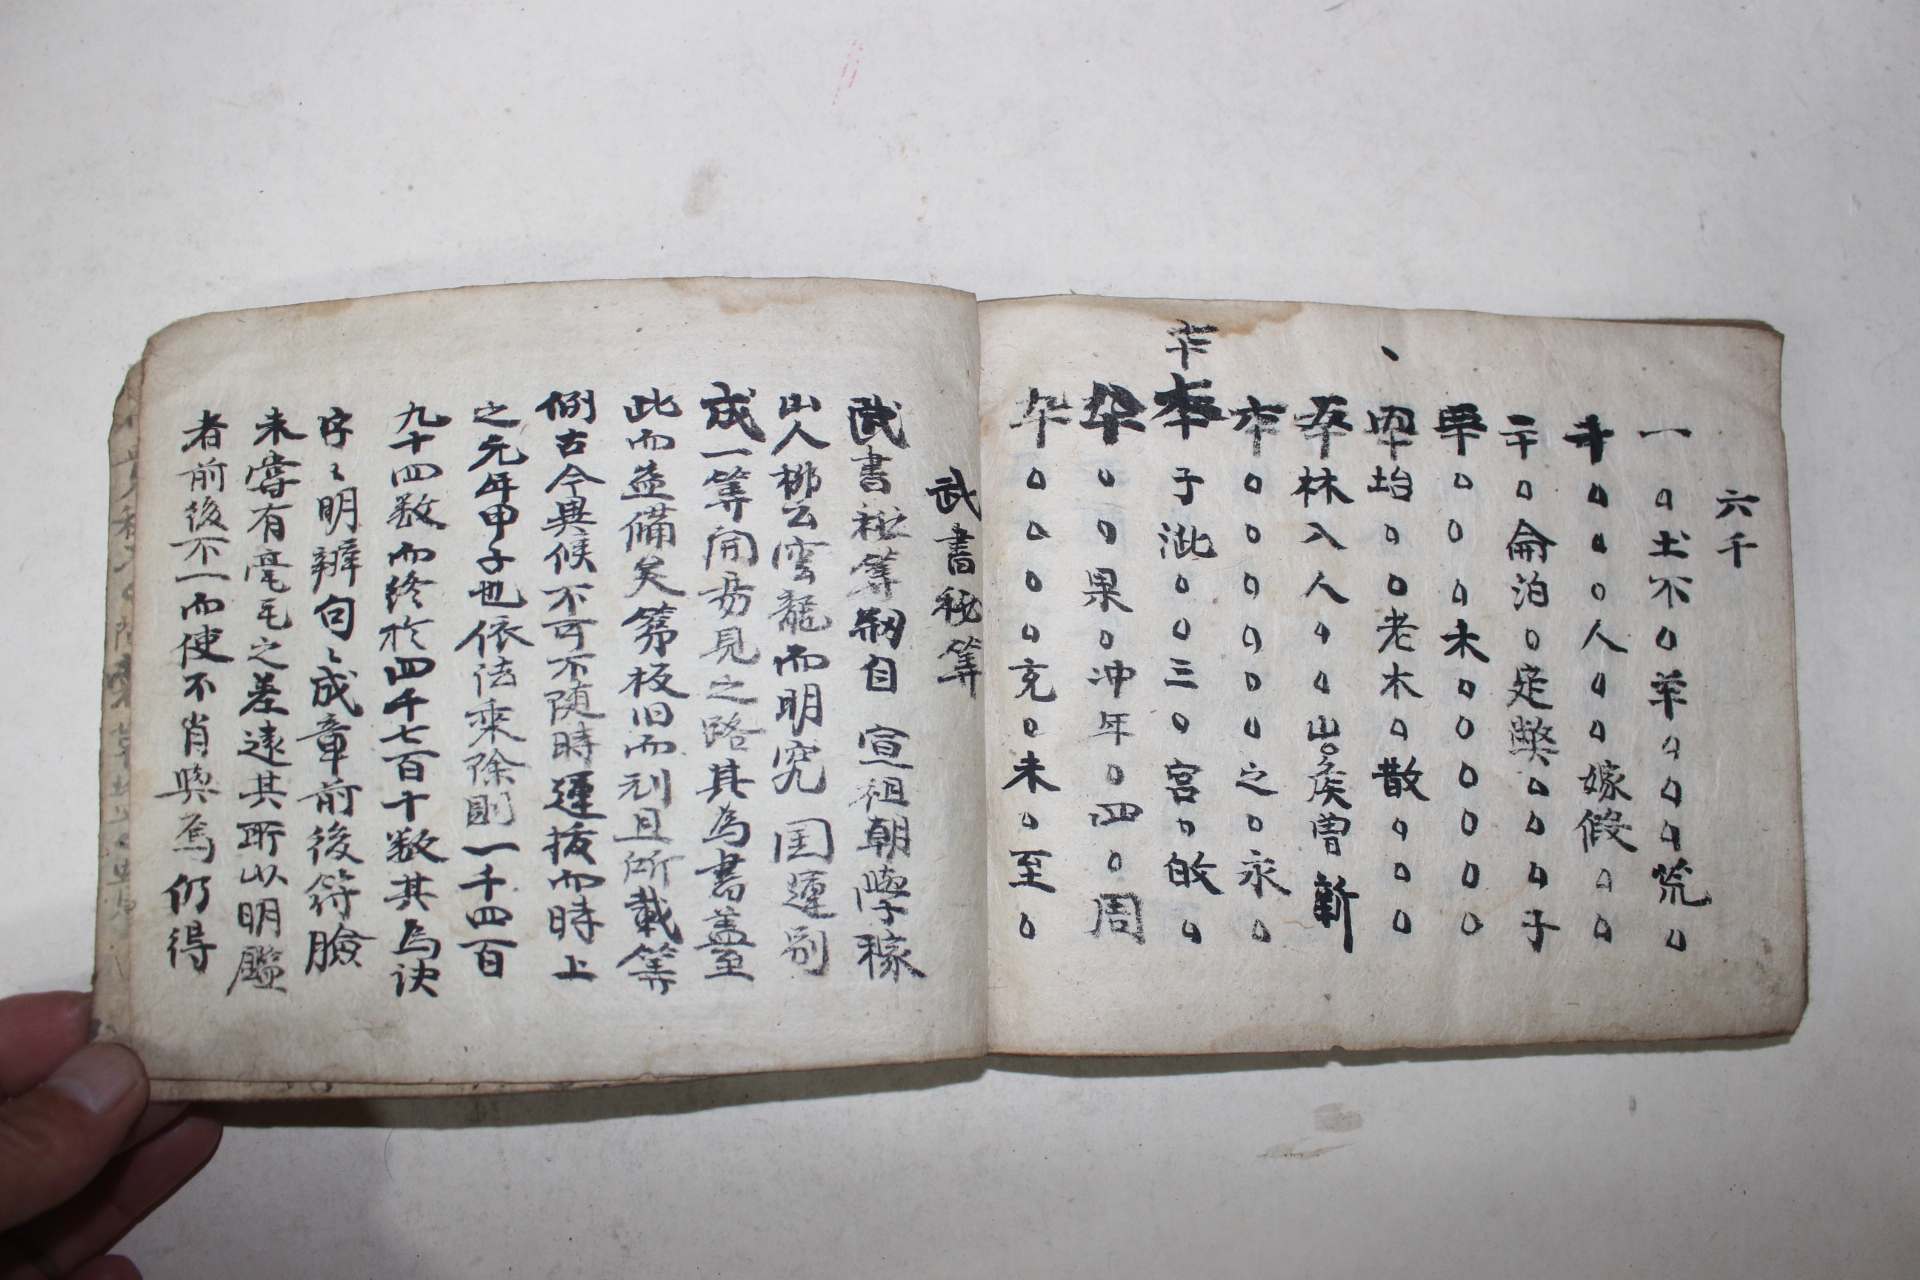 六千
一〇土不〇羊〇〇〇荒〇
〇〇〇人〇〇嫁假〇〇
二十〇侖泊〇定獘〇〇〇子
〇〇〇木〇〇〇〇〇
坮〇〇老木〇散〇〇〇
林入人〇〇〇出〇侯曾新
〇〇〇〇〇之〇永〇
卞
子泚〇〇三〇宮〇皎〇
〇〇果〇冲年〇四〇周
〇〇〇〇克〇未〇至〇
武書秘筭
武書秘筭刱自 宣祖朝學稼
山人柳公雲龍而明究 国運別
成一筭開易見之路其為書盖至
此而益備矣第板旧而刓且所載筭
例古今異候不可不随時運按而時上
之元年甲子也依法乘除則一千四百
九十四数而終於四千七百十数其為訣
字〻明辨句〻成章前後符臉
未嘗有毫毛之差遠其所以明鑑
者前後不一而使不肖輿焉仍得